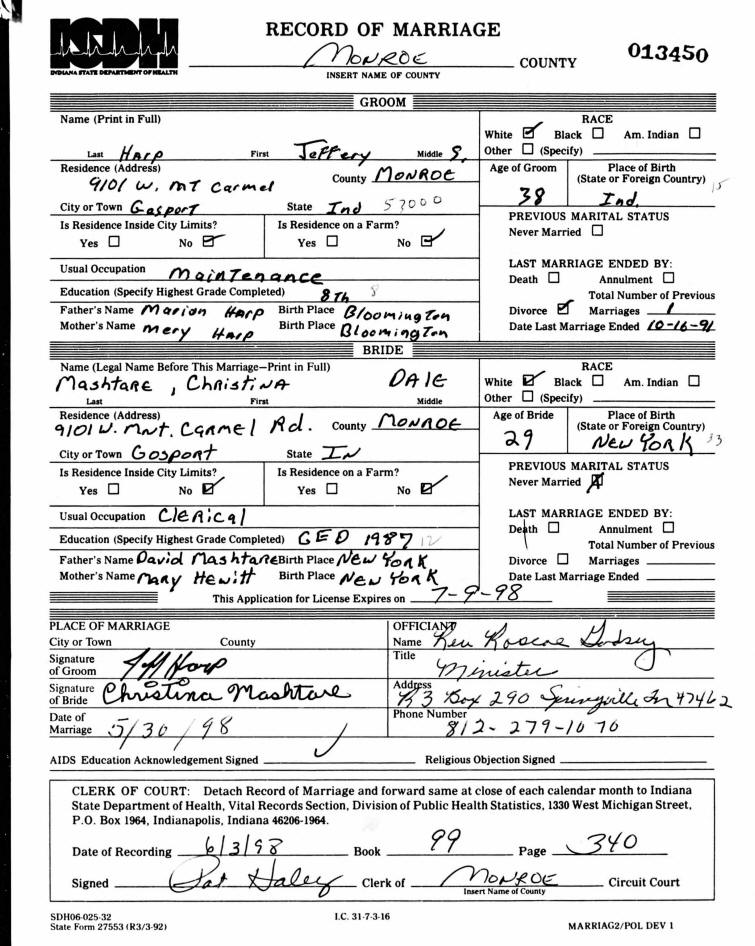 ISDH
INDIANA STATE DEPARTMENT OF HEALTH
RECORD OF MARRIAGE
MONROE COUNTY
INSERT NAME OF COUNTY
013450
GROOM
Name (Print in Full)
Harp Jeffery S.
Last First Middle
RACE
White ☑ Black ☐ Am. Indian ☐
Other ☐ (Specify)
Residence (Address)
9101 W. MT Carmel
County MONROE
City or Town Gasport State Ind 53000
Age of Groom
38
Place of Birth
(State or Foreign Country)
Ind. 15
Is Residence Inside City Limits?
Yes ☐ No ☑
Is Residence on a Farm?
Yes ☐ No ☑
PREVIOUS MARITAL STATUS
Never Married ☐
Usual Occupation Maintenance
Education (Specify Highest Grade Completed) 8Th 8
Father's Name Marion Harp Birth Place Bloomington
Mother's Name Mery Harp Birth Place Bloomington
LAST MARRIAGE ENDED BY:
Death ☐ Annulment ☐
Total Number of Previous
Divorce ☑ Marriages 1
Date Last Marriage Ended 10-16-91
BRIDE
Name (Legal Name Before This Marriage—Print in Full)
Mashtare, Christina Dale
Last First Middle
RACE
White ☑ Black ☐ Am. Indian ☐
Other ☐ (Specify)
Residence (Address)
9101 W. Mnt. Carmel Rd. County Monroe
City or Town Gosport State IN
Age of Bride
29
Place of Birth
(State or Foreign Country)
New York 33
Is Residence Inside City Limits?
Yes ☐ No ☑
Is Residence on a Farm?
Yes ☐ No ☑
PREVIOUS MARITAL STATUS
Never Married ☑
Usual Occupation Clerical
Education (Specify Highest Grade Completed) GED 1987 12
Father's Name David Mashtare Birth Place New York
Mother's Name Mary Hewitt Birth Place New York
LAST MARRIAGE ENDED BY:
Death ☐ Annulment ☐
Total Number of Previous
Divorce ☐ Marriages
Date Last Marriage Ended
This Application for License Expires on 7-9-98
PLACE OF MARRIAGE
City or Town County
Signature
of Groom Jeff Harp
Signature
of Bride Christina Mashtare
Date of
Marriage 5/30/98
OFFICIANT
Name Rev Roscoe Godsey
Title
Minister
Address
R 3 Box 290 Springville In 47462
Phone Number
812-279-1070
AIDS Education Acknowledgement Signed
Religious Objection Signed
CLERK OF COURT: Detach Record of Marriage and forward same at close of each calendar month to Indiana
State Department of Health, Vital Records Section, Division of Public Health Statistics, 1330 West Michigan Street,
P.O. Box 1964, Indianapolis, Indiana 46206-1964.
Date of Recording 6/3/98 Book 99 Page 340
Signed Pat Haley Clerk of MONROE Circuit Court
Insert Name of County
SDH06-025-32
State Form 27553 (R3/3-92)
I.C. 31-7-3-16
MARRIAG2/POL DEV 1